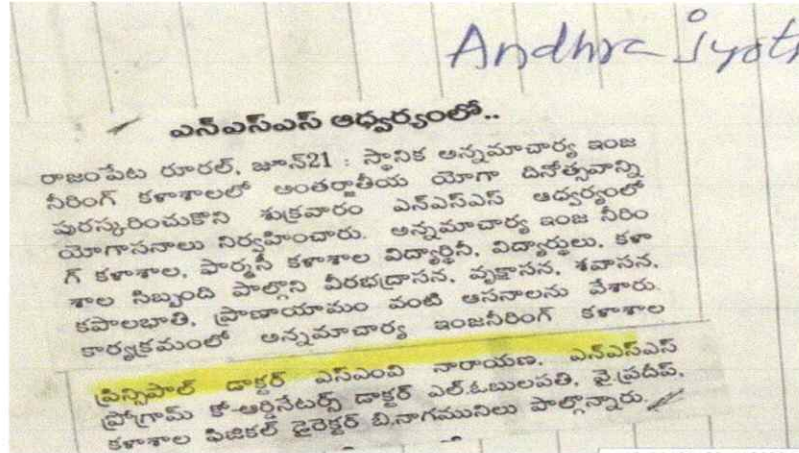 Andhra jyoth
ఎన్ఎస్ఎస్ ఆధ్వర్యంలో..
రాజంపేట రూరల్, జూన్21 : స్థానిక అన్నమాచార్య ఇంజ
నీరింగ్ కళాశాలలో అంతర్జాతీయ యోగా దినోత్సవాన్ని
పురస్కరించుకొని శుక్రవారం ఎన్ఎస్ఎస్ ఆధ్వర్యంలో
యోగాసనాలు నిర్వహించారు. అన్నమాచార్య ఇంజ నీరిం
గ్ కళాశాల, ఫార్మసీ కళాశాల విద్యార్థినీ, విద్యార్థులు, కళా
శాల సిబ్బంది పాల్గొని వీరభద్రాసన, వృక్షాసన, శవాసన,
కపాలభాతి, ప్రాణాయామం వంటి ఆసనాలను వేశారు.
కార్యక్రమంలో అన్నమాచార్య ఇంజనీరింగ్ కళాశాల
ప్రిన్సిపాల్ డాక్టర్ ఎస్ఎంవి నారాయణ, ఎన్ఎస్ఎస్
ప్రోగ్రామ్ కో-ఆర్డినేటర్స్ డాక్టర్ ఎల్.ఓబులపతి, జై.ప్రదీప్,
కళాశాల ఫిజికల్ డైరెక్టర్ బి.నాగమునిలు పాల్గొన్నారు.